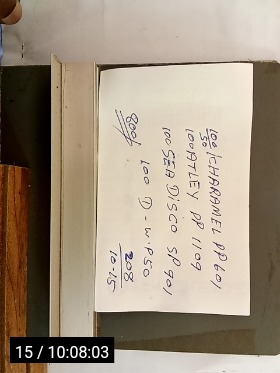 100/50 CHARAMEL PP 601
100 ATLEY PP 1109
100 SEA DISCO SP 901
100 D-W.P.50
800/
208
10-15
15 / 10:08:03